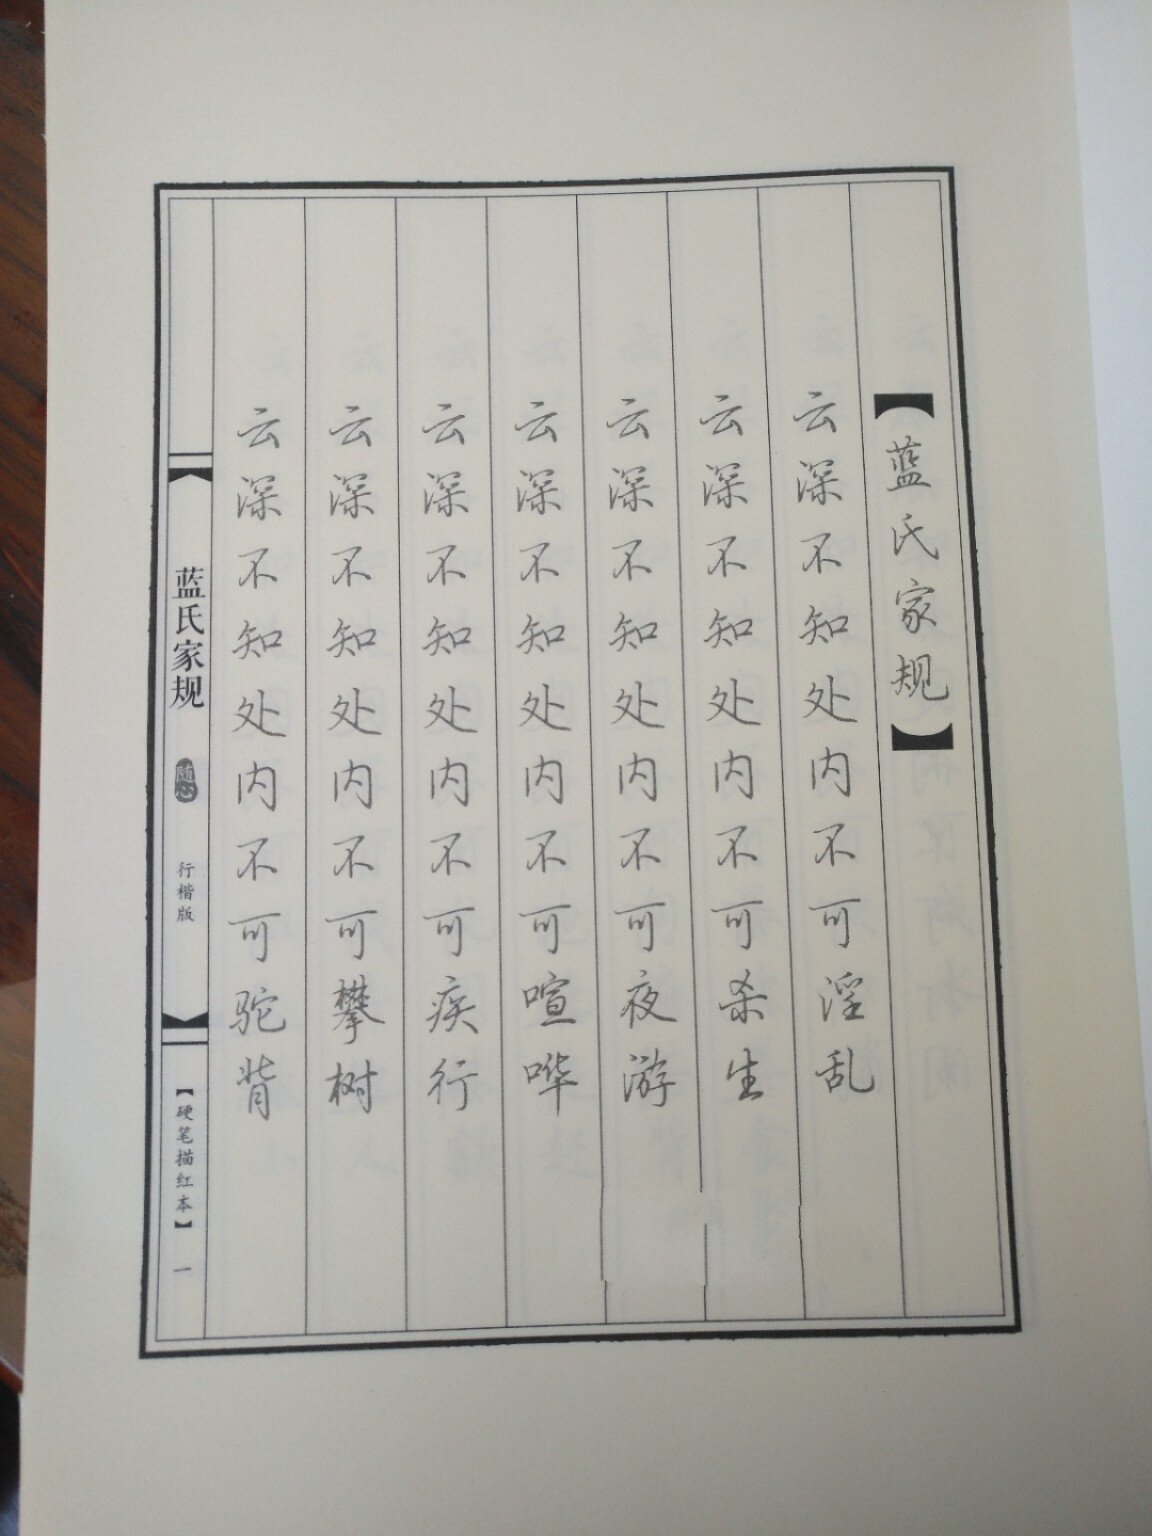 【蓝氏家规】
云深不知处内不可淫乱
云深不知处内不可杀生
云深不知处内不可夜游
云深不知处内不可喧哗
云深不知处内不可疾行
云深不知处内不可攀树
云深不知处内不可驼背
蓝氏家规
随心
行楷版
【硬笔描红本】
一